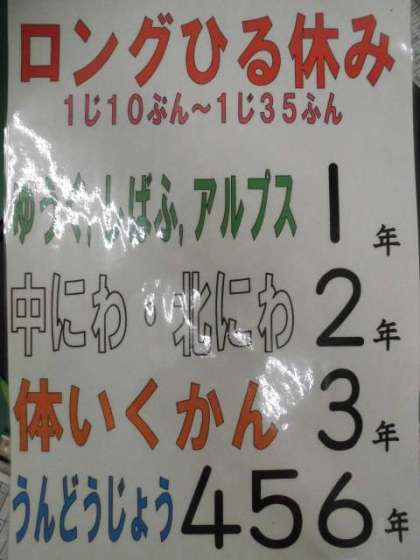 ロングひる休み
1じ10ぷん〜1じ35ふん
ゆうぐ,しばふ,アルプス 1年
中にわ・北にわ 2年
体いくかん 3年
うんどうじょう 456年